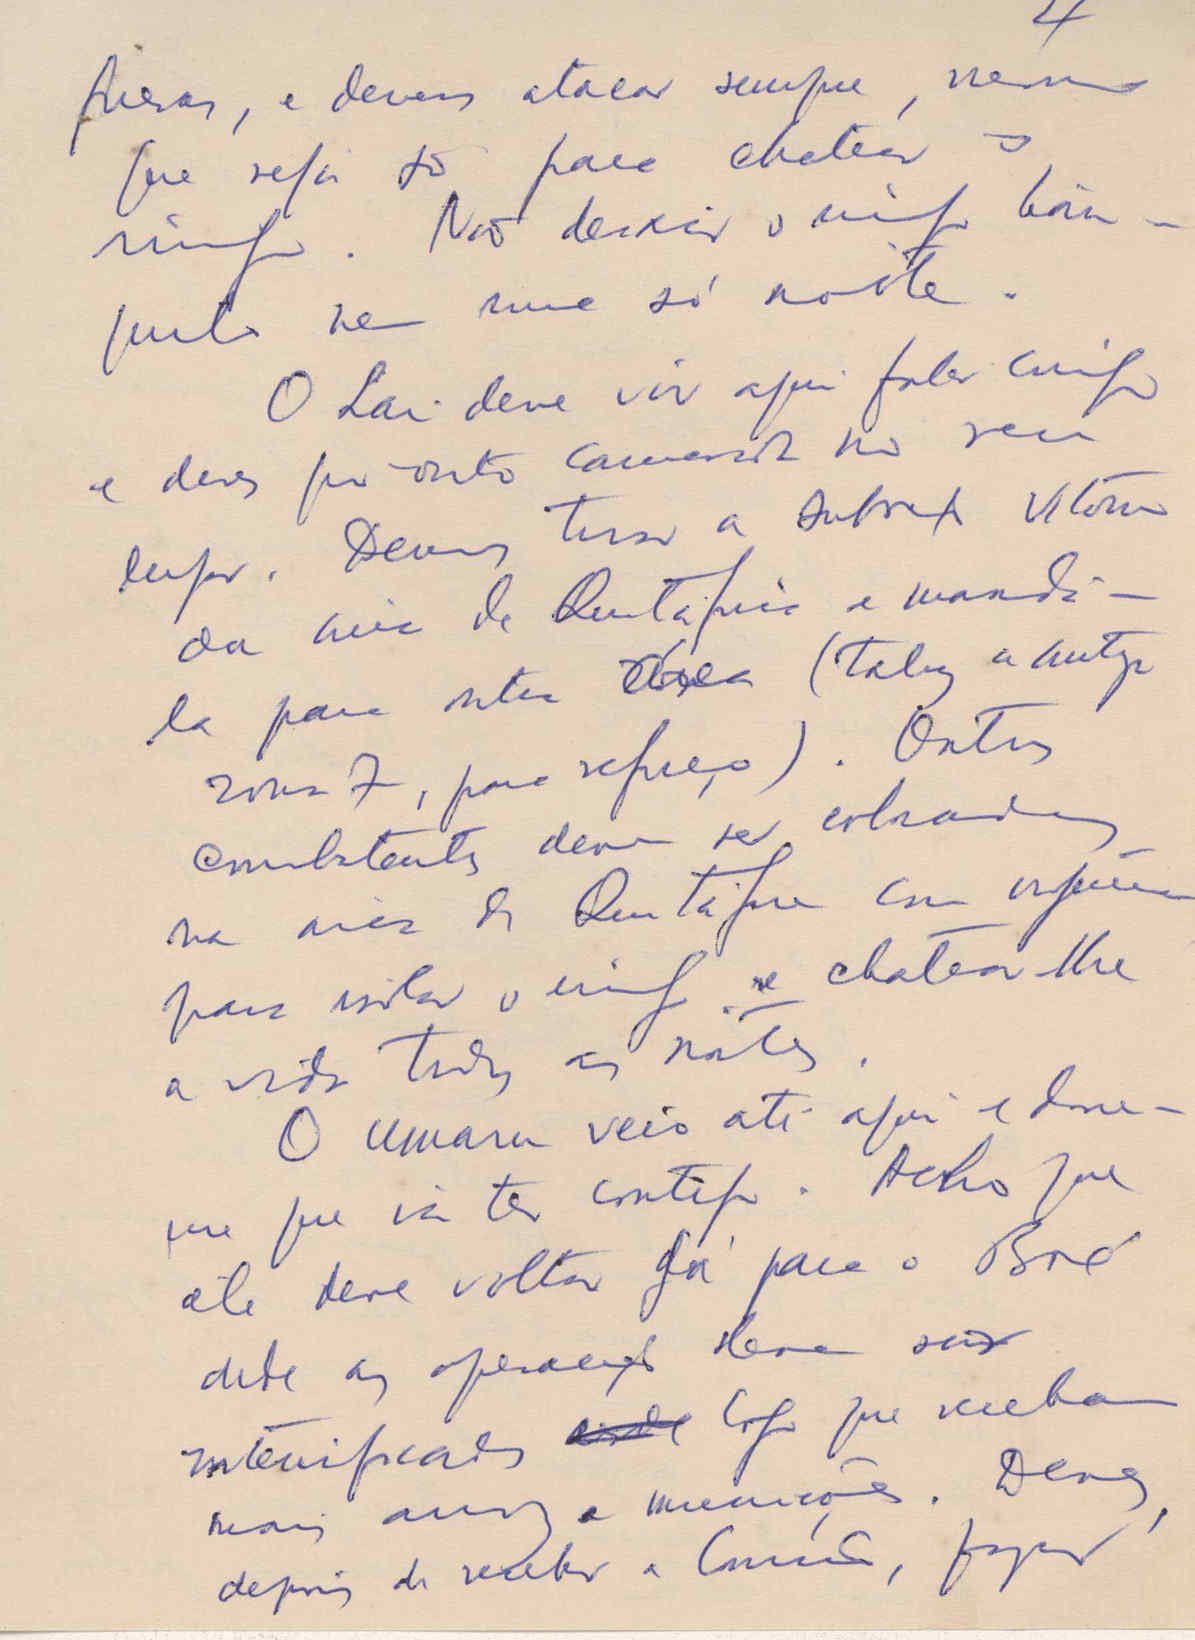 4
fueras, e devem atacar sempre, mesmo
que seja só para chatear o
inimigo. Não deixar o inimigo tran-
quilo nem uma só noite.
O Lai deve vir aqui falar comigo
e deves por outro camarada no seu
lugar. Devemos tirar a Vitorino
da área de Quitáfine e mandá-
la para outra área (talvez a antiga
zona 7, para reforço). Outros
combatentes devem ser colocados
na área de Quitáfine com
para isolar o inimigo e chatear-lhe
a vida todas as noites.
O Umaru veio até aqui e disse-
me que ia ter contigo. Acho que
ele deve voltar já para o Boé
onde as operações devem ser
intensificadas logo que recebam
mais armas e munições. Deves,
depois de receber o Camião, fazer